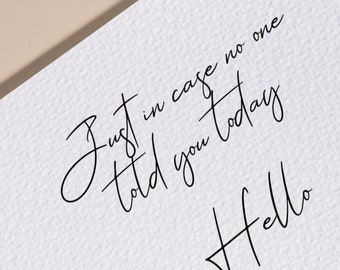 Just in case no one
told you today
Hello